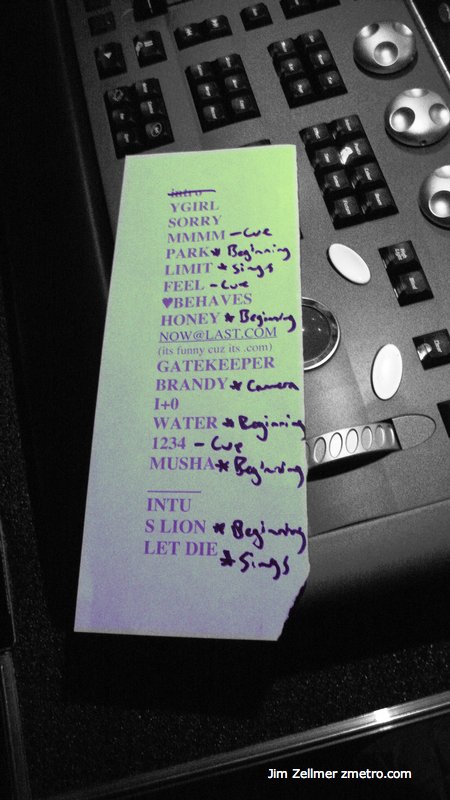 intro
YGIRL
SORRY
MMMM - Cue
PARK * Beginning
LIMIT * Sings
FEEL - Cue
♥BEHAVES
HONEY * Beginning
NOW@LAST.COM
(its funny cuz its .com)
GATEKEEPER
BRANDY * Camera
I+0
WATER * Beginning
1234 - Cue
MUSHA * Beginning
INTU
S LION * Beginning
LET DIE
* Sings
Jim Zellmer zmetro.com